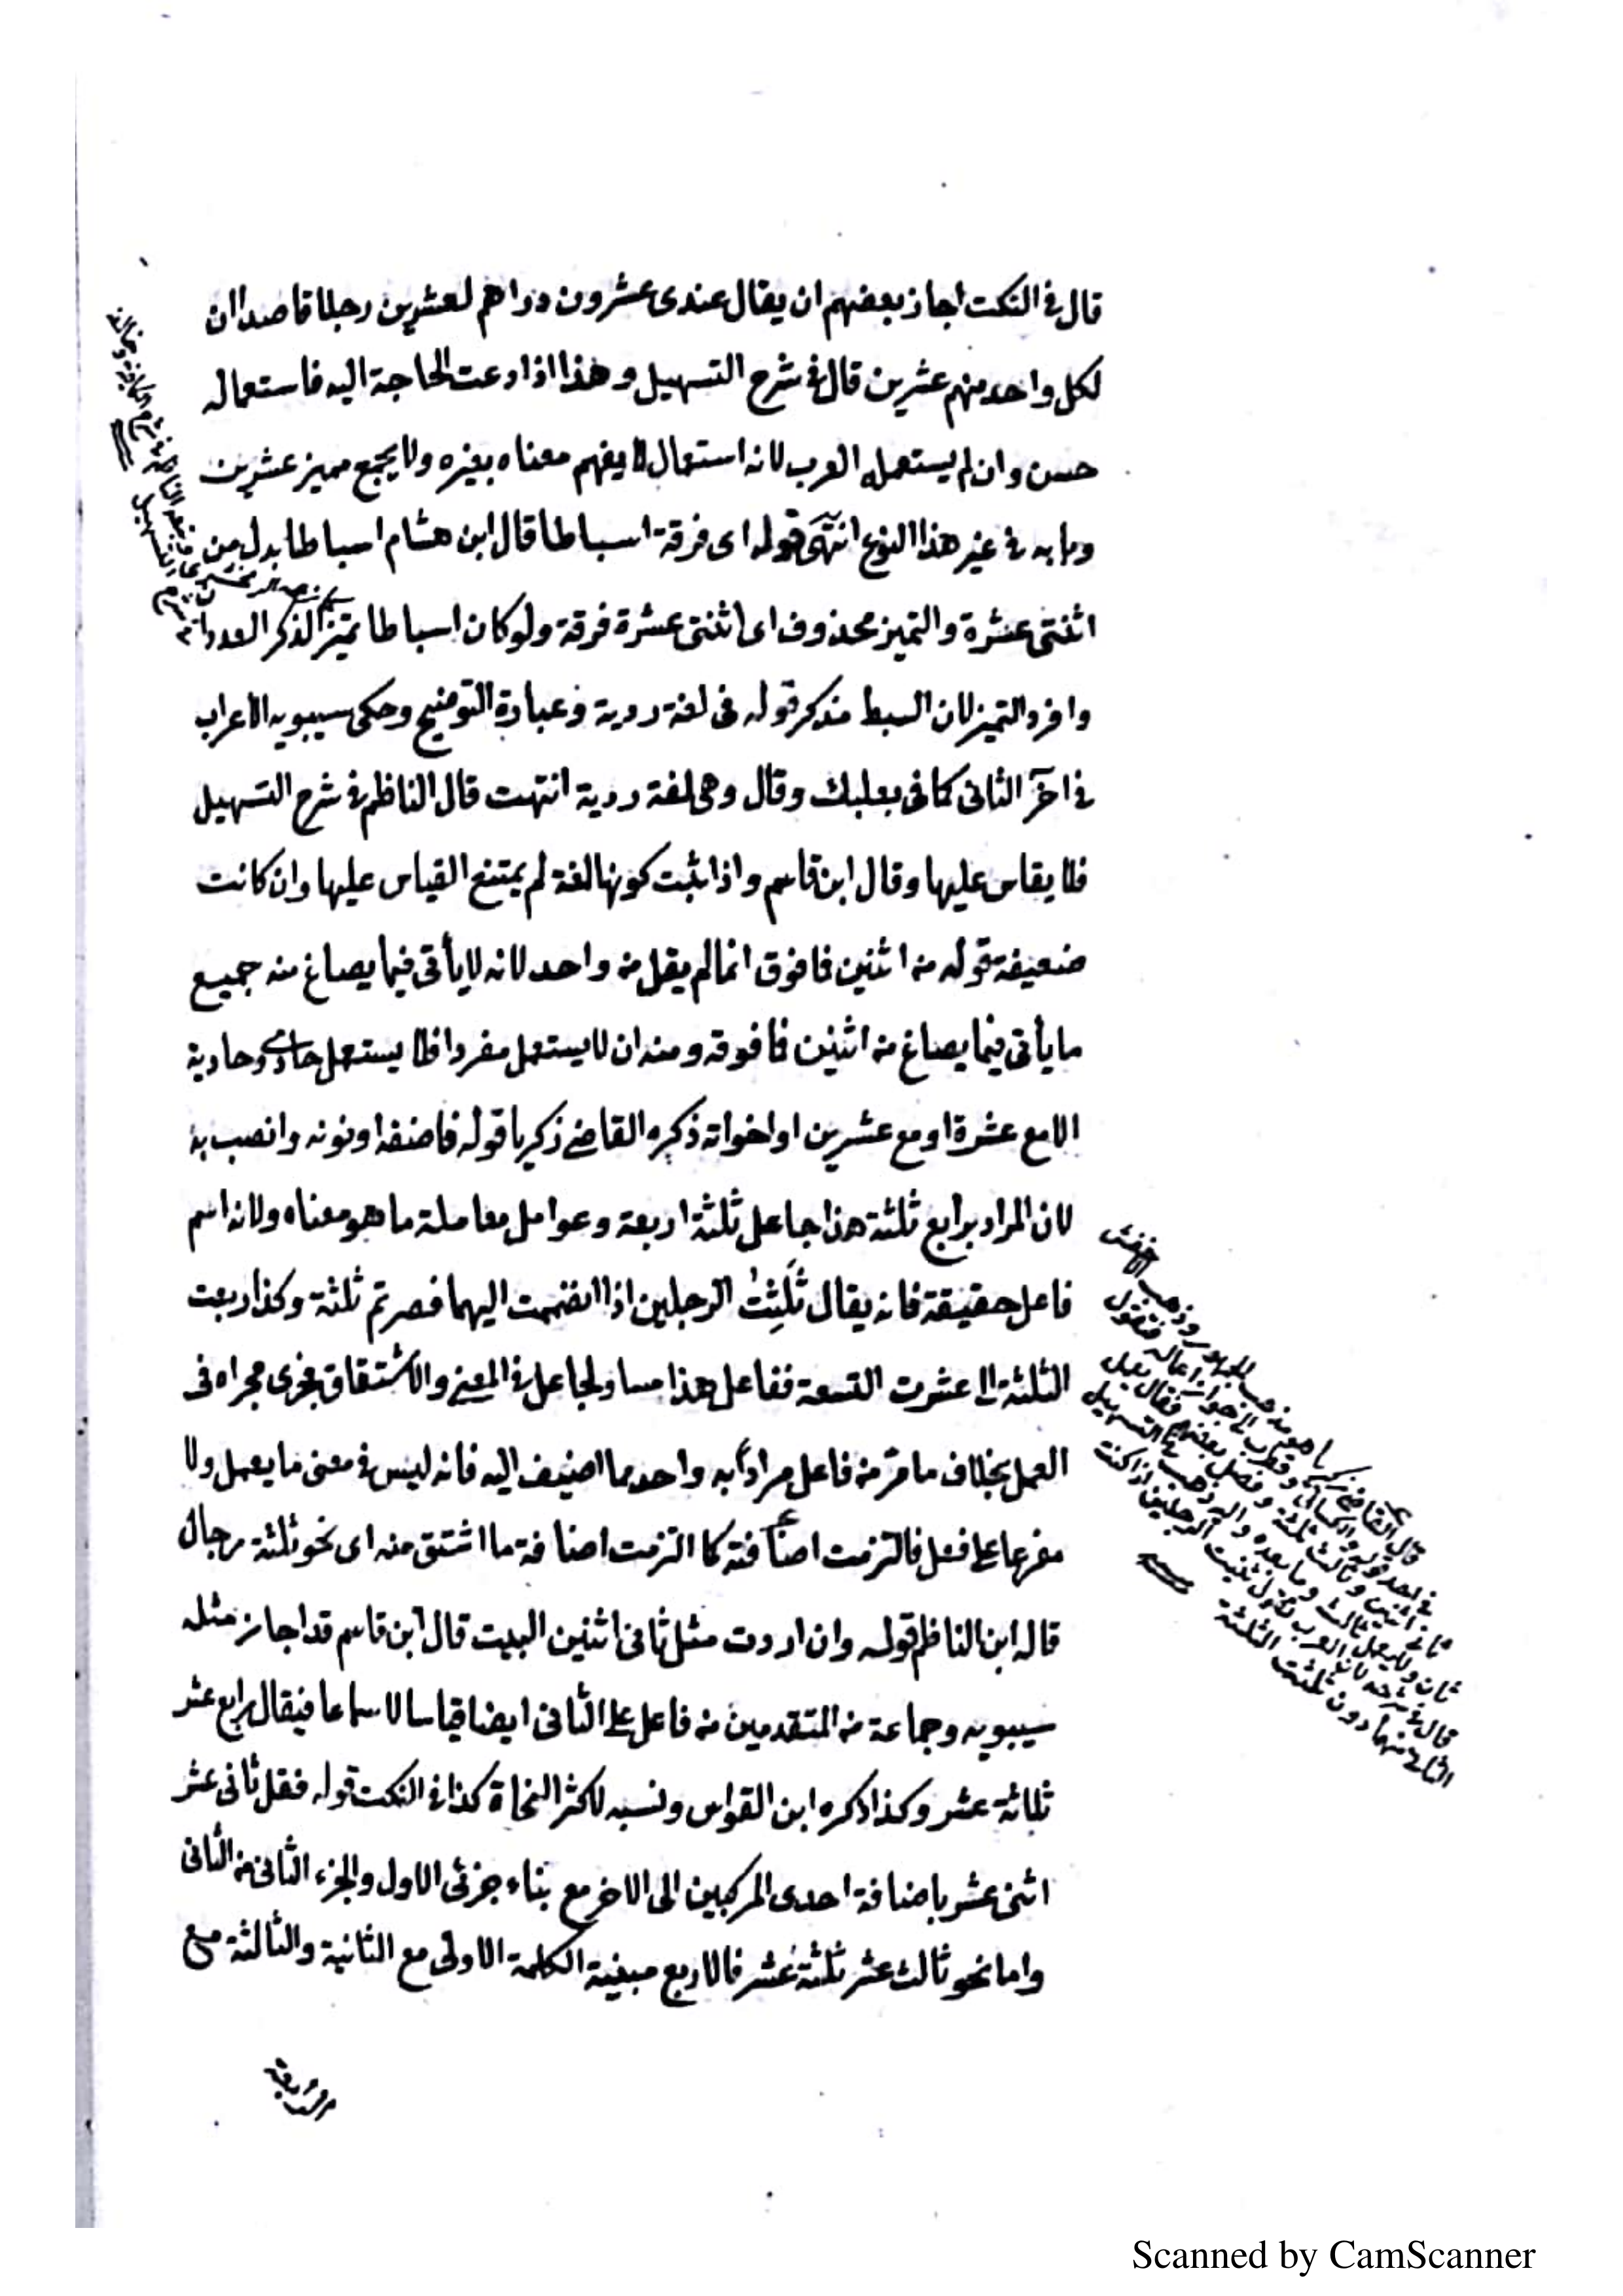 قال في النكت اجاز بعضهم ان يقال عندى عشرون دراهم لعشرين رجلا قاصدا ان
لكل واحد منهم عشرين قال في شرح التسهيل وهذا اذا دعت الحاجة اليه فاستعماله
حسن وان لم يستعمله العرب لانه استعمال لا يفهم معناه بغيره ولا يجمع مميز عشرين
وبابه في غير هذا النوع انتهى قوله اى فرقة اسباطا قال ابن هشام اسباطا بدل من
اثنتى عشرة والتميز محذوف اى اثنتى عشرة فرقة ولو كان اسباطا تميزا لذكر العددان
وافرد التميز لان السبط مذكر قوله فى لغة ردية وعبارة التوضيح وحكى سيبويه الاعراب
في آخر الثانى كما فى بعلبك وقال وهى لغة ردية انتهت قال الناظم في شرح التسهيل
فلا يقاس عليها وقال ابن قاسم واذا ثبت كونها لغة لم يمتنع القياس عليها وان كانت
ضعيفة قوله من اثنين فما فوق انما لم يقل من واحد لانه لا يأتى فيما يصاغ منه جميع
ما يأتى فيما يصاغ من اثنين فما فوقه ومنه ان لا يستعمل مفردا فلا يستعمل حادى وحادية
الا مع عشرة او مع عشرين او اخواته ذكره القاضى زكريا قوله فاضفه او نونه وانصب به
لان المراد برابع ثلثة هذا جاعل ثلثة اربعة وعوامل معاملة ما هو معناه ولانه اسم
فاعل حقيقة فانه يقال ثَلَثْتُ الرجلين اذا انضممت اليهما فصرتم ثلثة وكذا ربعت
الثلثة الى عشرت التسعة ففاعل هذا مساو لجاعل في المعنى والاشتقاق فجرى مجراه فى
العمل بخلاف ما مر من فاعل مرادا به واحد مما اضيف اليه فانه ليس في معنى ما يعمل ولا
مفرعا على فعل فالتزمت اضافته كما التزمت اضافة ما اشتق منه اى نحو ثلثة رجال
قاله ابن الناظم قوله وان اردت مثل ثانى اثنين البيت قال ابن قاسم قد اجاز مثله
سيبويه وجماعة من المتقدمين من فاعل على الثانى ايضا قياسا لا سماعا فيقال رابع عشر
ثلاثة عشر وكذا ذكره ابن القواس ونسبه لاكثر النحاة كذا في النكت قوله فقل ثانى عشر
اثنى عشر باضافة احدى المركبين الى الاخر مع بناء جزئى الاول والجزء الثانى من الثانى
واما نحو ثالث عشر ثلثة عشر فالاربع مبنية الكلمة الاولى مع الثانية والثالثة مع
الرابعة
قال القاضى زكريا هو مذهب الجمهور وذهب الاخفش
الكسائى وقطرب الى جواز اعماله فتقول
ثانى اثنين وثالث ثلثة وفصل بعضهم فقال يعمل
ثان ولا يعمل ثالث وما بعده واليه ذهب في التسهيل
قال في شرحه لان العرب تقول ثنيت الرجلين اذا كنت
الثانى منهما دون ثلثت الثلثة
Scanned by CamScanner